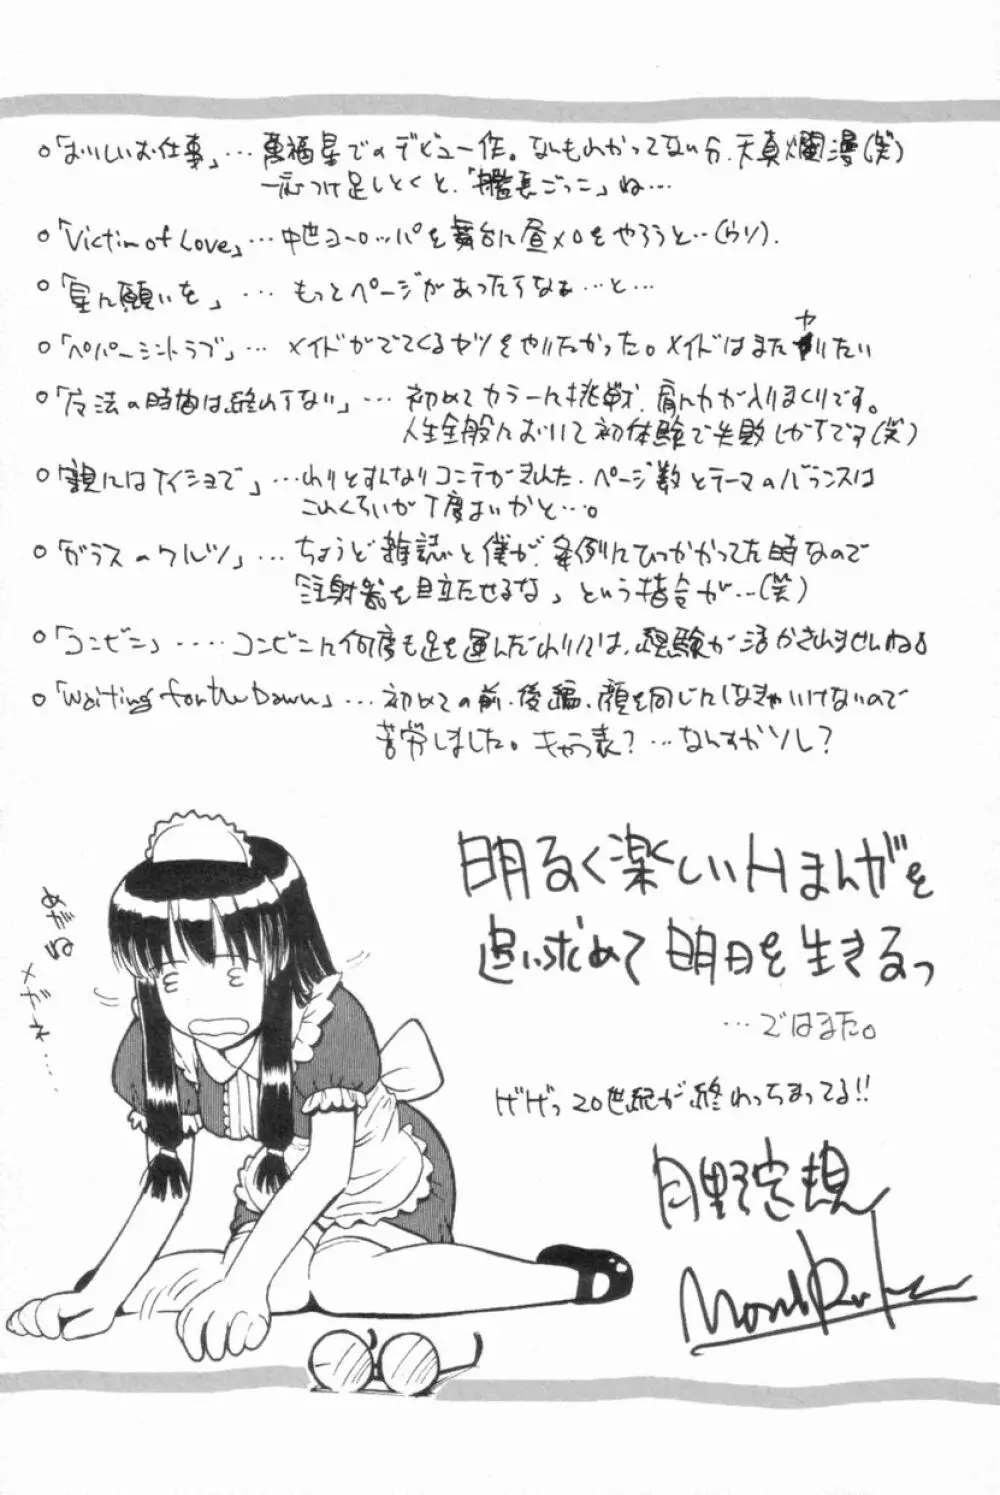 「おいしいお仕事」…萬福星でのデビュー作。なんもわかってない分、天真爛漫(笑)
一応つけ足しとくと、「艦長ごっこ」ね…
「Victim of Love」…中世ヨーロッパを舞台に昼メロをやろうと…(ウソ).
「星に願いを」… もっとページがあったらなぁ…と…
「ペパーミントラブ」… メイドがでてくるヤツをやりたかった。メイドはまたヤりたい
「魔法の時間は終わらない」… 初めてカラーに挑戦、肩に力が入りまくりです。
人生全般において初体験で失敗しがちです(笑)
「親にはナイショで」…わりとすんなりコンテがきれた。ページ数とテーマのバランスは
これくらいが丁度よいかと…。
「ガラスのワルツ」…ちょうど雑誌と僕が、条例にひっかかってた時なので
「注射器を目立たせるな」という指令が…(笑)
「コンビニ」‥‥‥コンビニに何度も足を運んだわりには、経験が活かされませんね。
「Waiting for the Dawn」…初めての前・後編、顔を同じにしなきゃいけないので
苦労しました。キャラ表?…なんすかソレ?
めがね
メガネ……
明るく楽しいHまんがを
追い求めて明日を生きるっ
…ではまた。
げげっ20世紀が終わっちまってる!!
月野定規